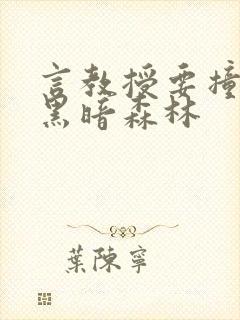 言教授要撞
黑暗森林
葉陳寧